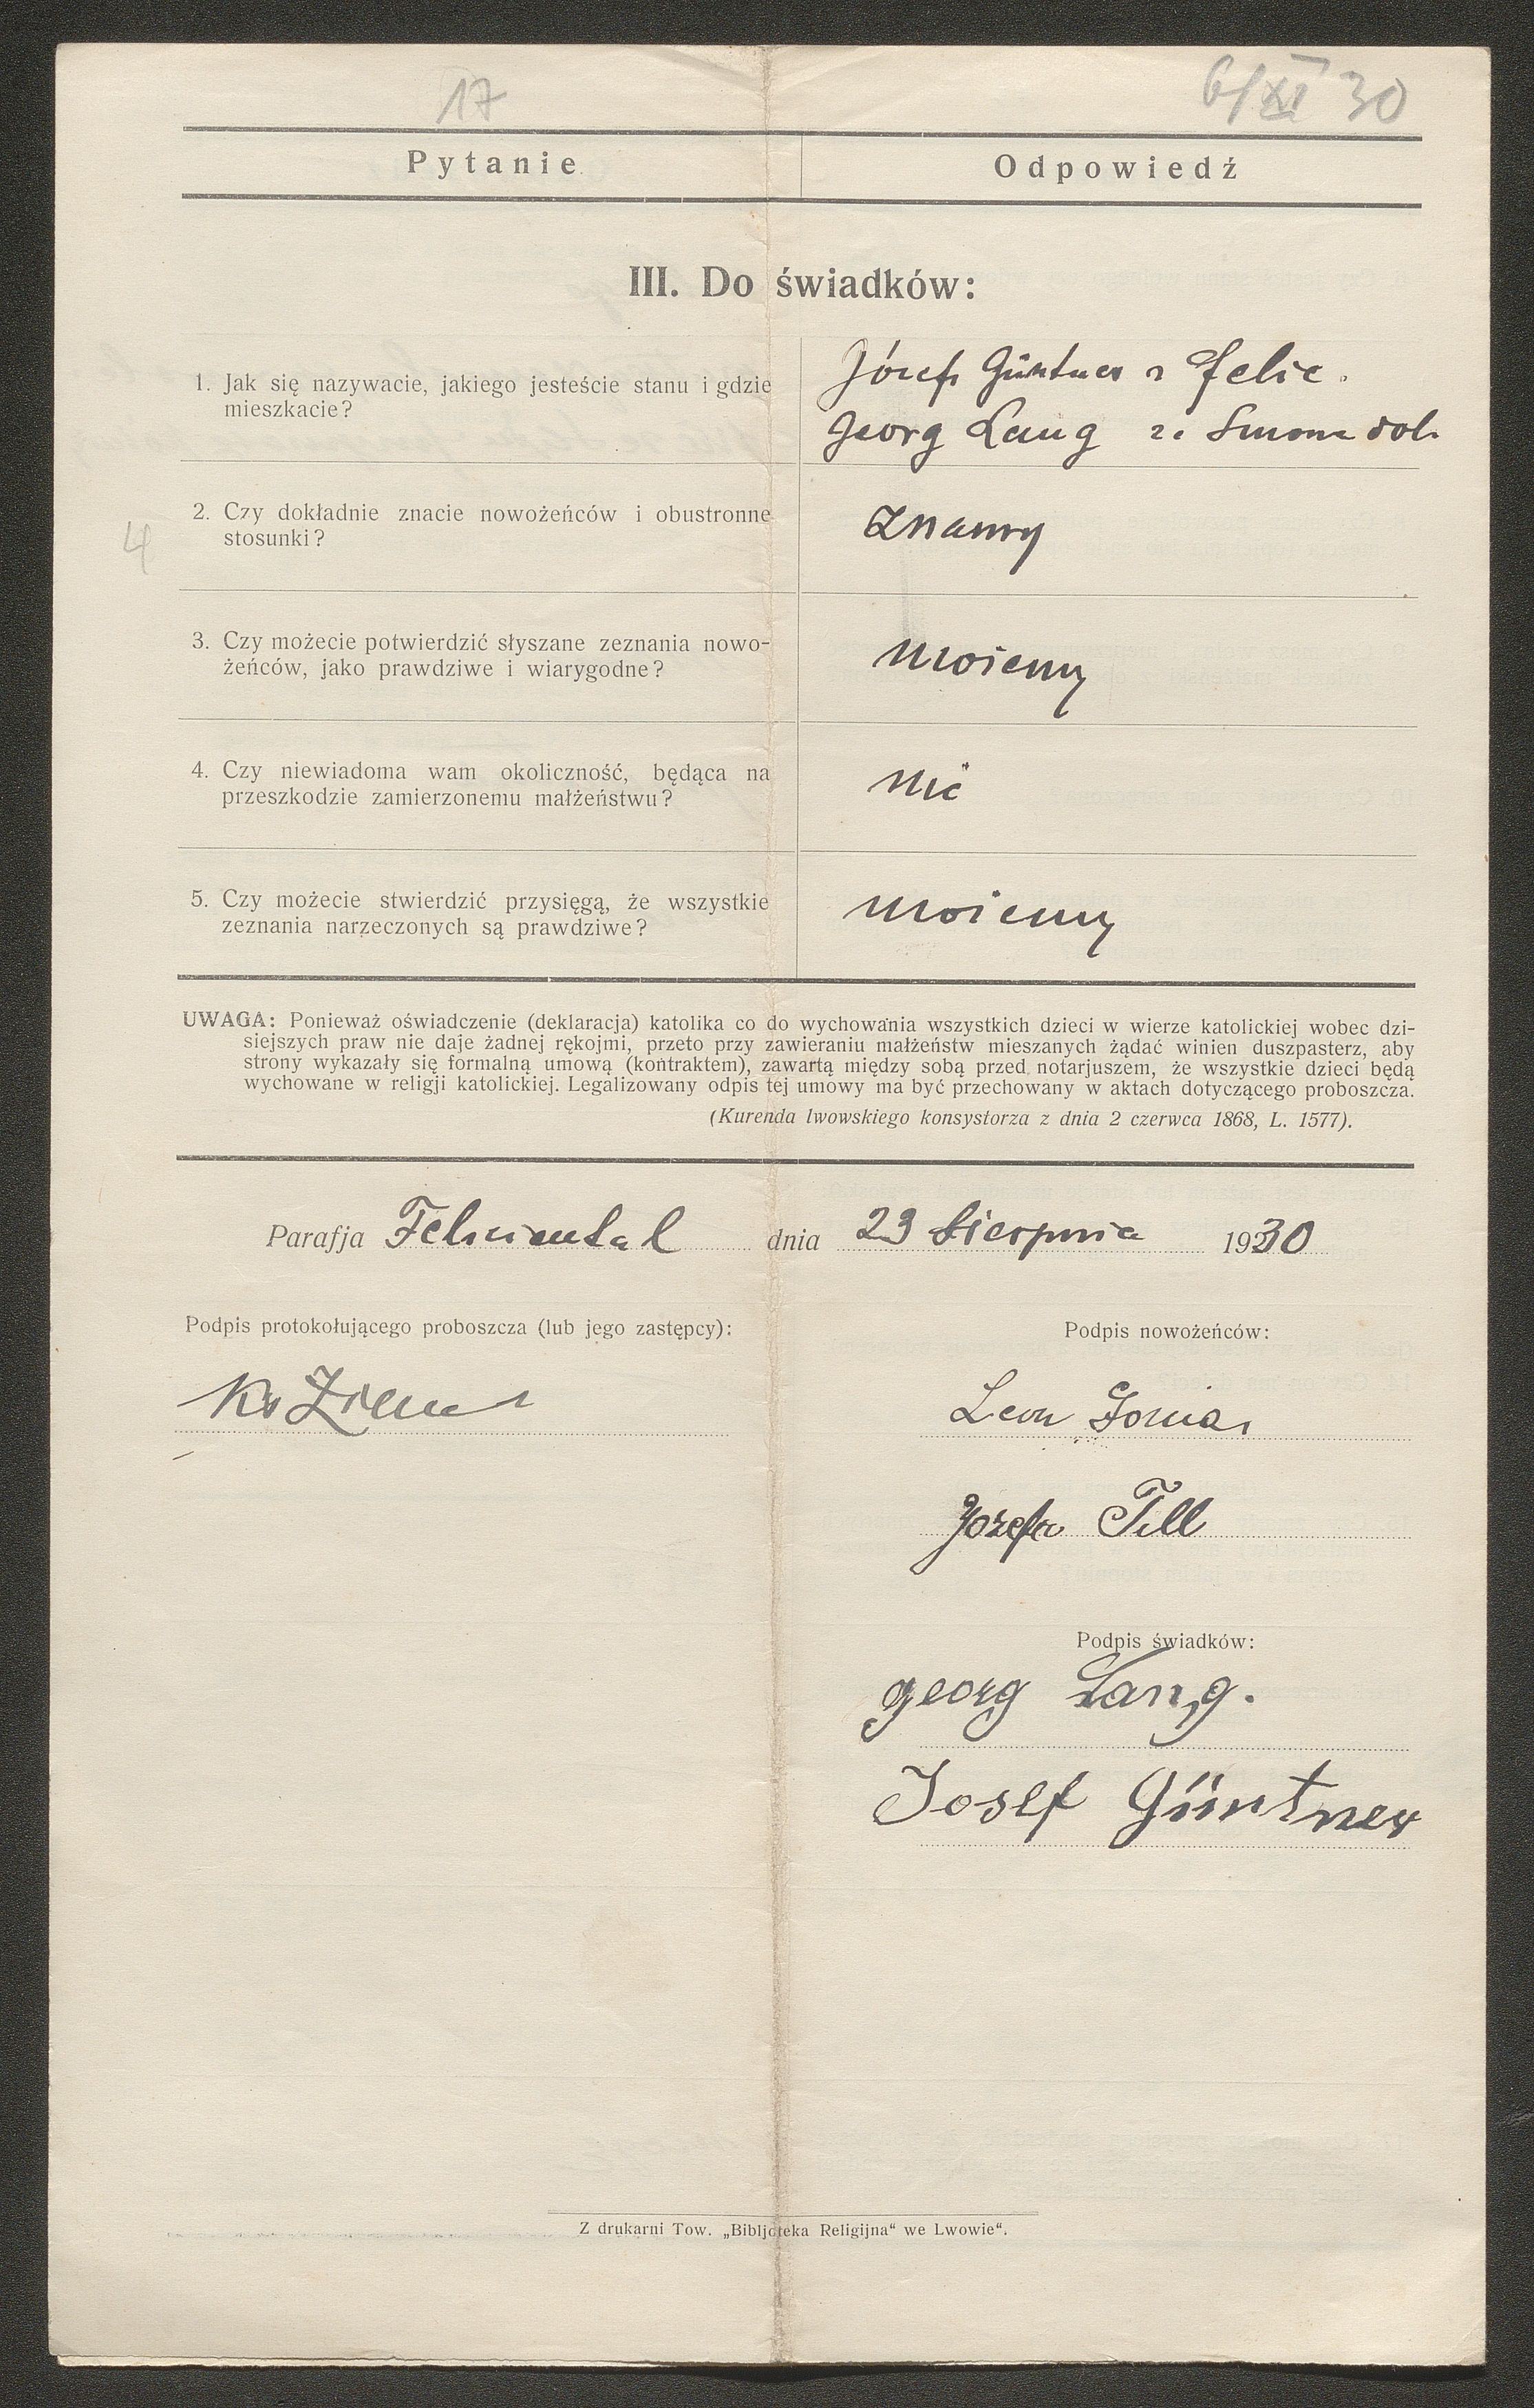 17
6/XI 30
Pytanie
Odpowiedź
III. Do świadków:
1. Jak się nazywacie, jakiego jesteście stanu i gdzie
mieszkacie?
Józef Güntner z Felic.
Georg Lang ze
2. Czy dokładnie znacie nowożeńców i obustronne
stosunki?
4
Znamy
3. Czy możecie potwierdzić słyszane zeznania nowo-
żeńców, jako prawdziwe i wiarygodne?
możemy
4. Czy niewiadoma wam okoliczność, będąca na
przeszkodzie zamierzonemu małżeństwu?
nic
5. Czy możecie stwierdzić przysięgą, że wszystkie
zeznania narzeczonych są prawdziwe?
możemy
UWAGA: Ponieważ oświadczenie (deklaracja) katolika co do wychowania wszystkich dzieci w wierze katolickiej wobec dzi-
siejszych praw nie daje żadnej rękojmi, przeto przy zawieraniu małżeństw mieszanych żądać winien duszpasterz, aby
strony wykazały się formalną umową (kontraktem), zawartą między sobą przed notarjuszem, że wszystkie dzieci będą
wychowane w religji katolickiej. Legalizowany odpis tej umowy ma być przechowany w aktach dotyczącego proboszcza.
(Kurenda lwowskiego konsystorza z dnia 2 czerwca 1868, L. 1577).
Parafja Felizienthal dnia 23 Sierpnia 1930
Podpis protokołującego proboszcza (lub jego zastępcy):
Podpis nowożeńców:
Ks
Leon
Jozefa Till
Podpis świadków:
Georg Lang.
Josef Güntner
Z drukarni Tow. „Bibljoteka Religijna“ we Lwowie“.